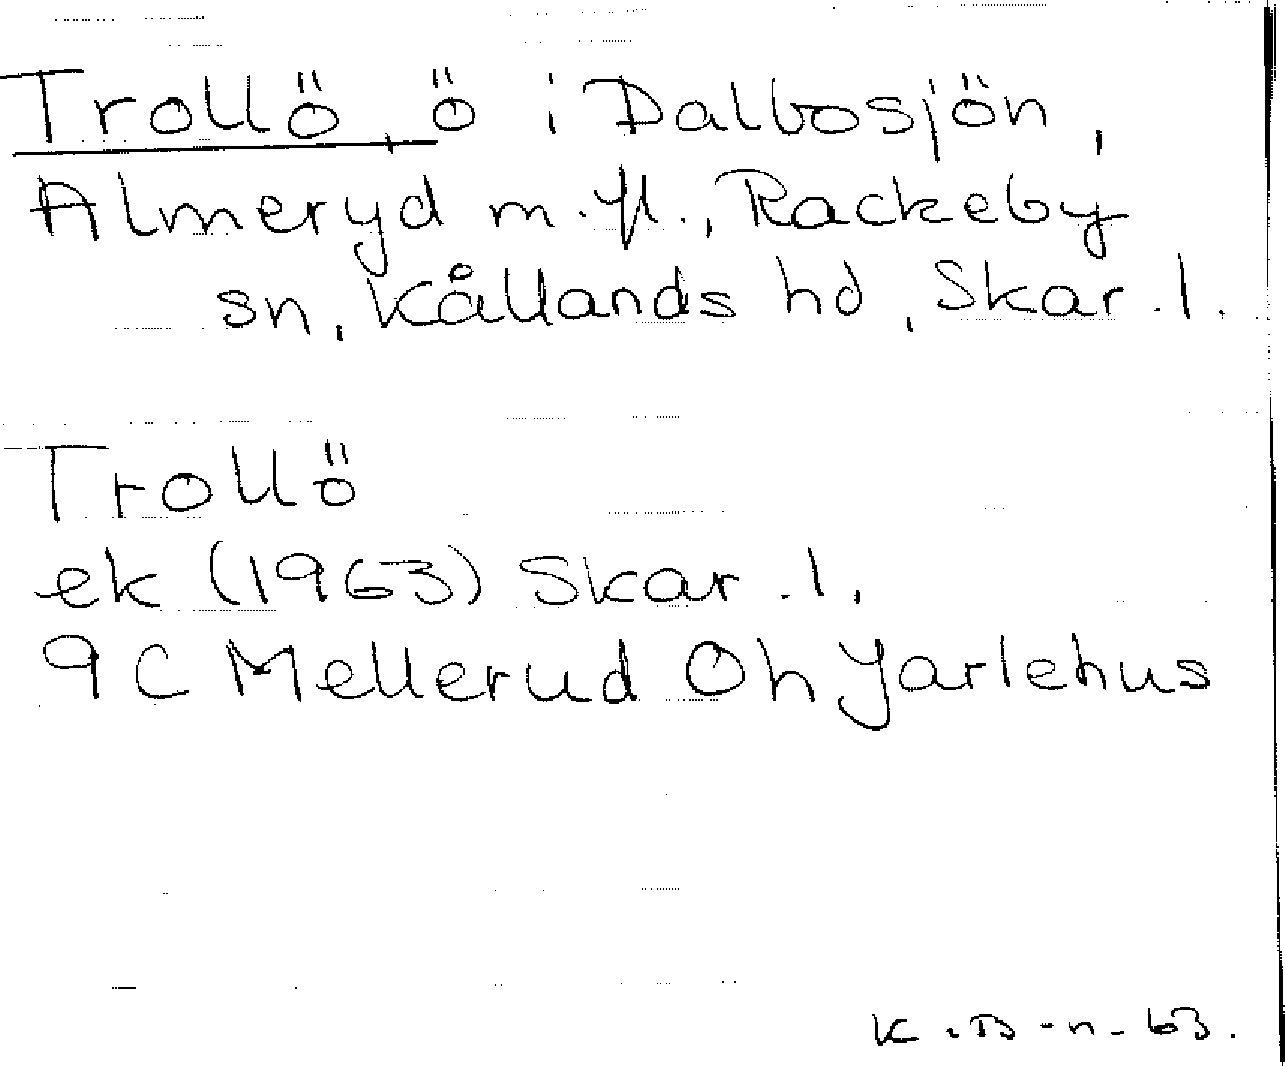 Trollö, ö i Dalbosjön,
Almeryd m.fl., Rackeby
sn, Kållands hd, Skar.l.
Trollö
ek (1963) Skar.l.
9C Mellerud Öh Jarlehus
K.B-n-63.